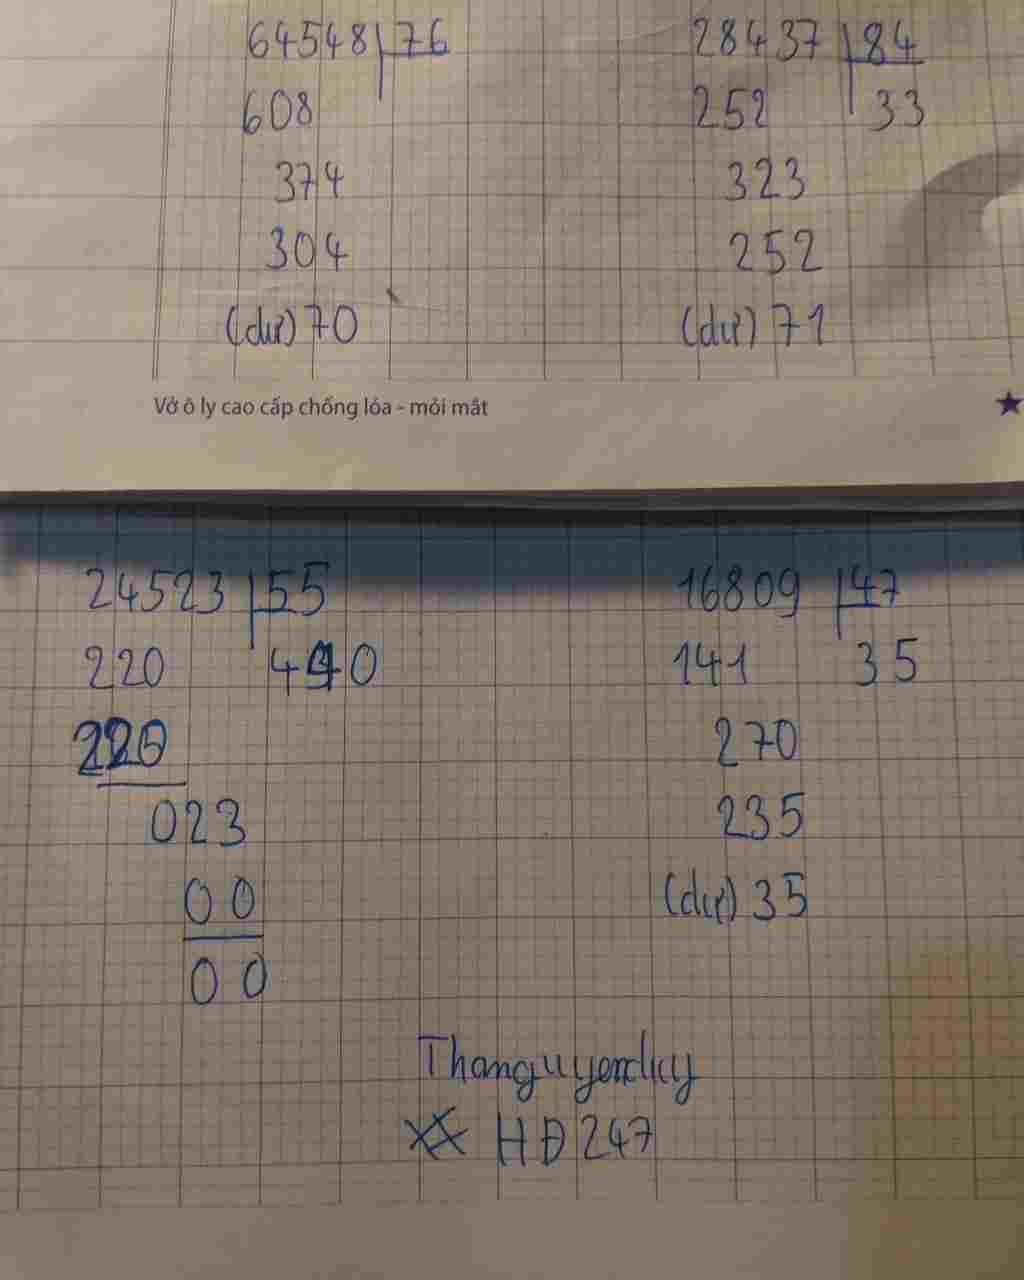 64548 76
608
374
304
(dư) 70
28437 84
252 33
323
252
(dư) 71
Vở ô ly cao cấp chống lóa - mỏi mắt
24523 55
220
220
023
00
00
16809 47
141 35
270
235
(dư) 35
HĐ247